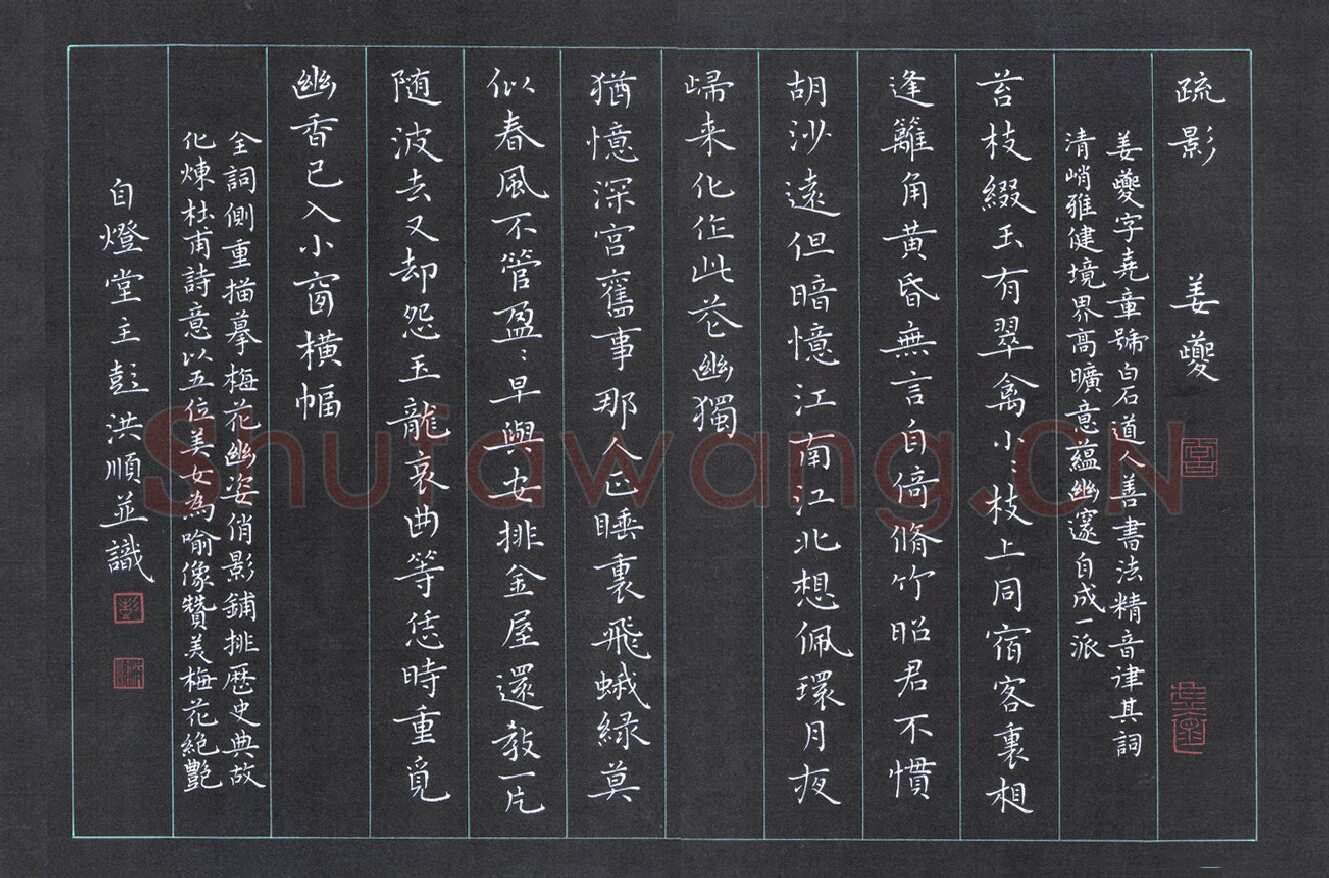 疏影 姜夔
姜夔字堯章號白石道人善書法精音律其詞
清峭雅健境界高曠意蘊幽邃自成一派
苔枝綴玉有翠禽小〻枝上同宿客裏相
逢籬角黃昏無言自倚脩竹昭君不慣
胡沙遠但暗憶江南江北想佩環月夜
歸来化作此花幽獨
猶憶深宮舊事那人正睡裏飛蛾緑莫
似春風不管盈〻早與安排金屋還教一片
随波去又却怨玉龍哀曲等恁時重覓
幽香已入小窗橫幅
全詞側重描摹梅花幽姿俏影鋪排歷史典故
化煉杜甫詩意以五位美女為喻像贊美梅花絶艷
自燈堂主彭洪順並識
Shufawang.CN